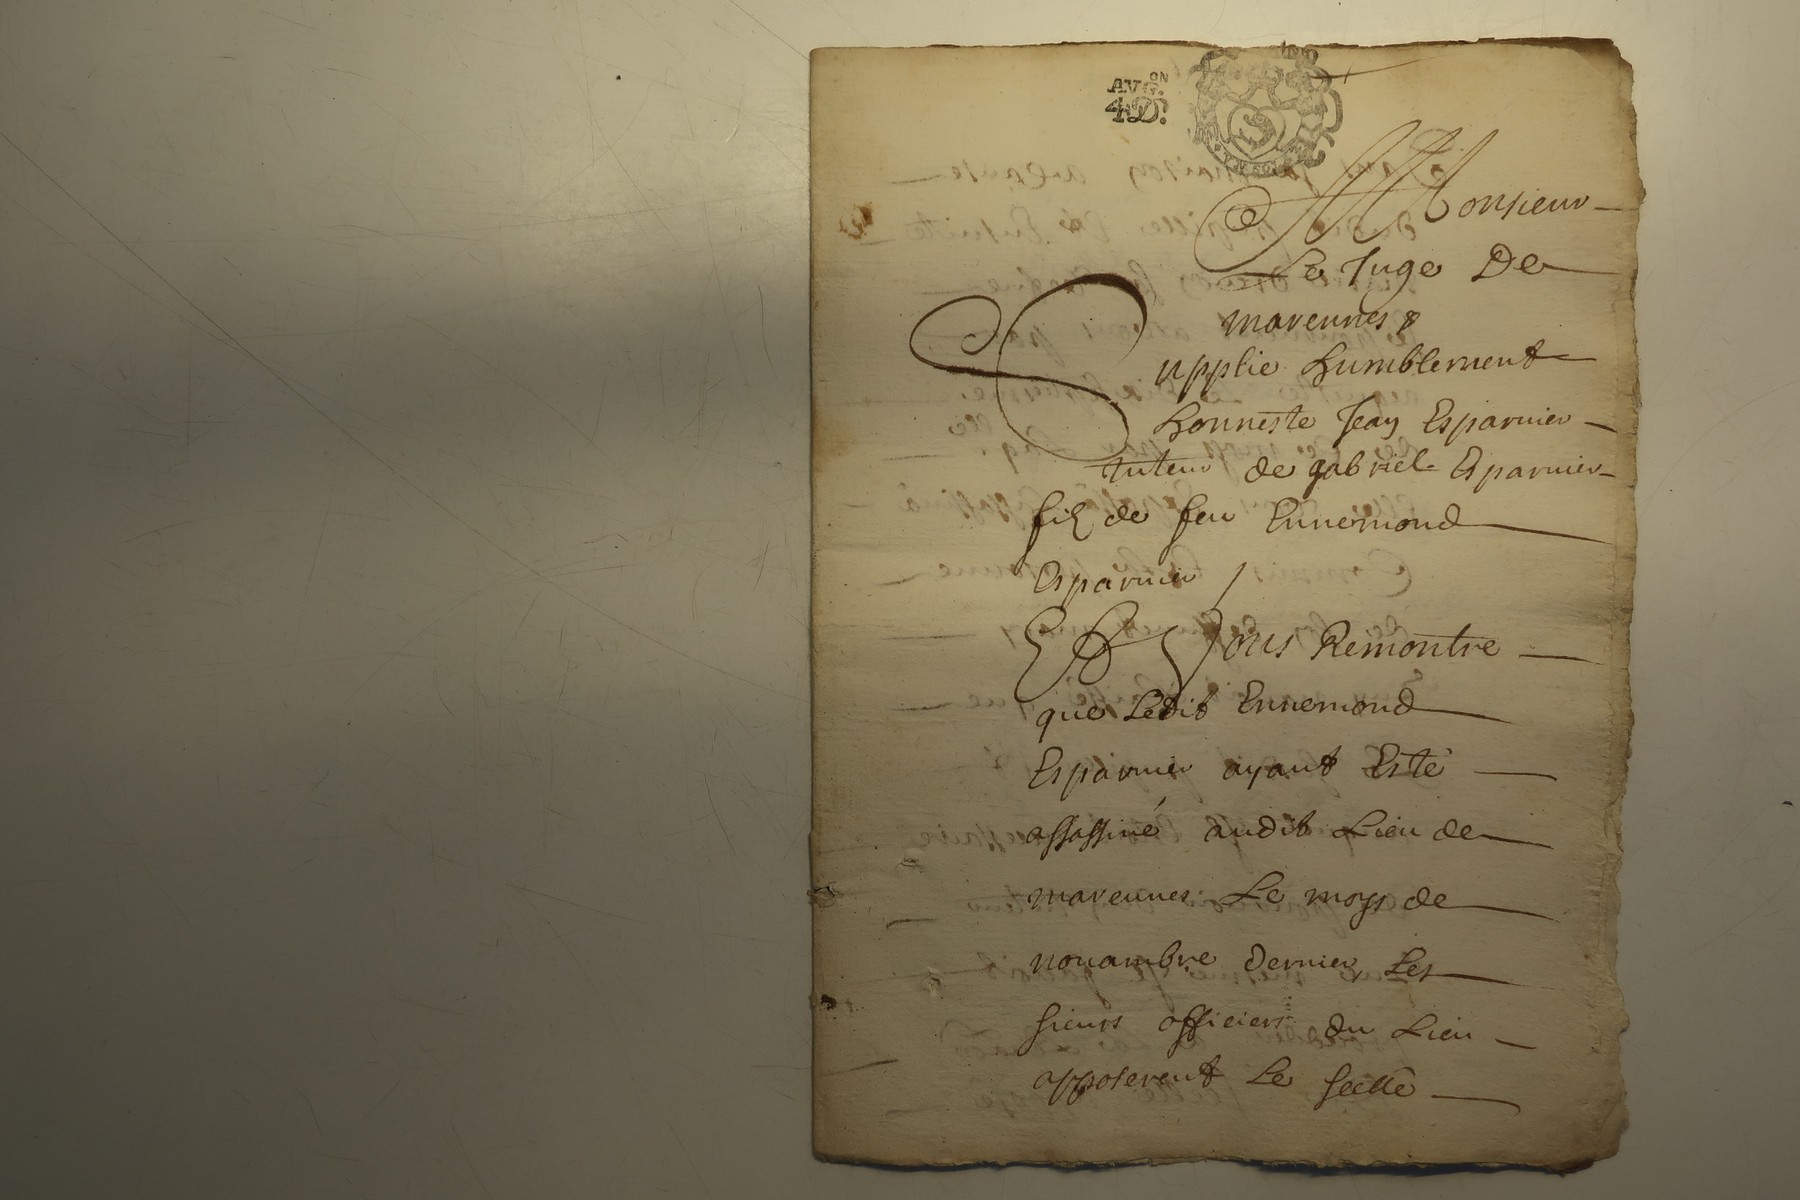 AVG.ON
4D.
Monsieur
Le Juge De
marennes
Supplie humblement
honneste Jean Esparnier
tuteur de gabriel Esparnier
filz de feu Ennemond
Esparnier /
Et Vous Remontre
que Ledit Ennemond
Esparnier ayant Esté
assassiné audit Lieu de
marennes Le moys de
nouambre dernier Les
sieurs officiers du Lieu
apposerent Le scellé